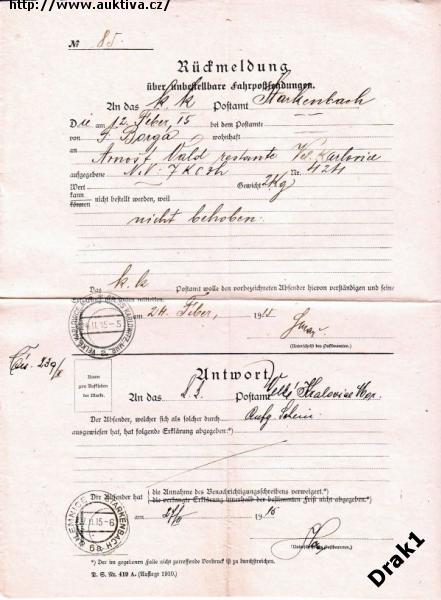 http://www.auktiva.cz/
№ 85.
Rückmeldung
über unbestellbare Fahrpostsendungen.
An das k.k. Postamt Starkenbach
Die am 12. Feber 15 bei dem Postamte
von J. Berga wohnhaft
an Arnošt Vald restante Vel. Karlovice
aufgegebene N.N. 7 K Nr. 424
Wert Gewicht 2 Kg
kann
können nicht bestellt werden, weil
nicht behoben.
Das k.k. Postamt wolle den vorbezeichneten Absender hievon verständigen und seine
am 24. Feber, 19
(Unterschrift des Postbeamten.)
Raum
zum Aufkleben
der Marke.
Antwort.
An das Postamt Velké Karlovice
Der Absender, welcher sich als solcher durch
ausgewiesen hat, hat folgende Erklärung abgegeben:*)
Der Absender hat (die Annahme des Benachrichtigungsschreibens verweigert.*)
(die verlangte Erklärung innerhalb der bestimmten Frist nicht abgegeben.*)
am 27/II 1915
(Unterschrift des Postbeamten.)
STARKENBACH
*) Der im gegebenen Falle nicht zutreffende Vordruck ist zu durchstreichen.
D. S. Nr. 419 A. (Auflage 1910.)
Drak1